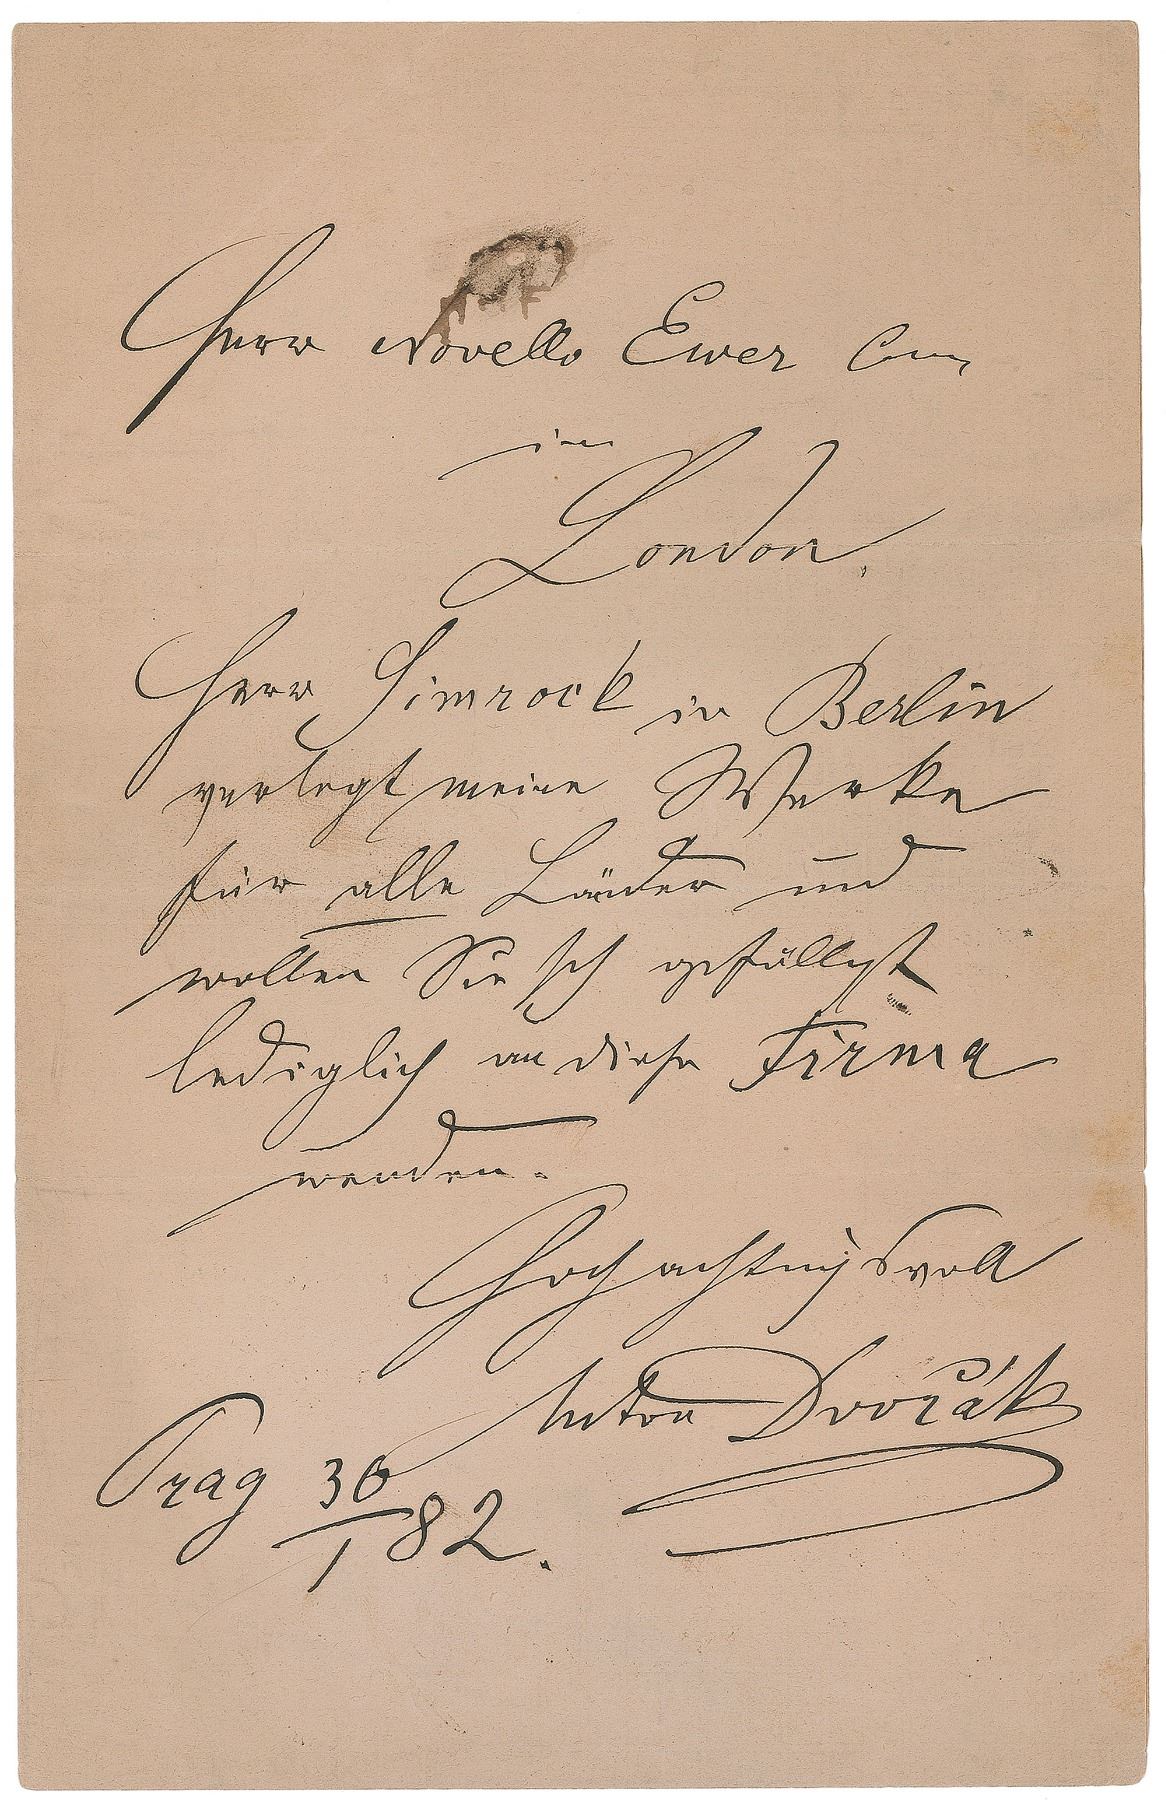 Herr Novello Ewer Com
in
London.
Herr Simrock in Berlin
verlegt meine Werke
für alle Länder und
wollen Sie sich gefälligst
lediglich an diese Firma
wenden.
Hochachtungsvoll
Anton Dvořák
Prag 30/1 82.